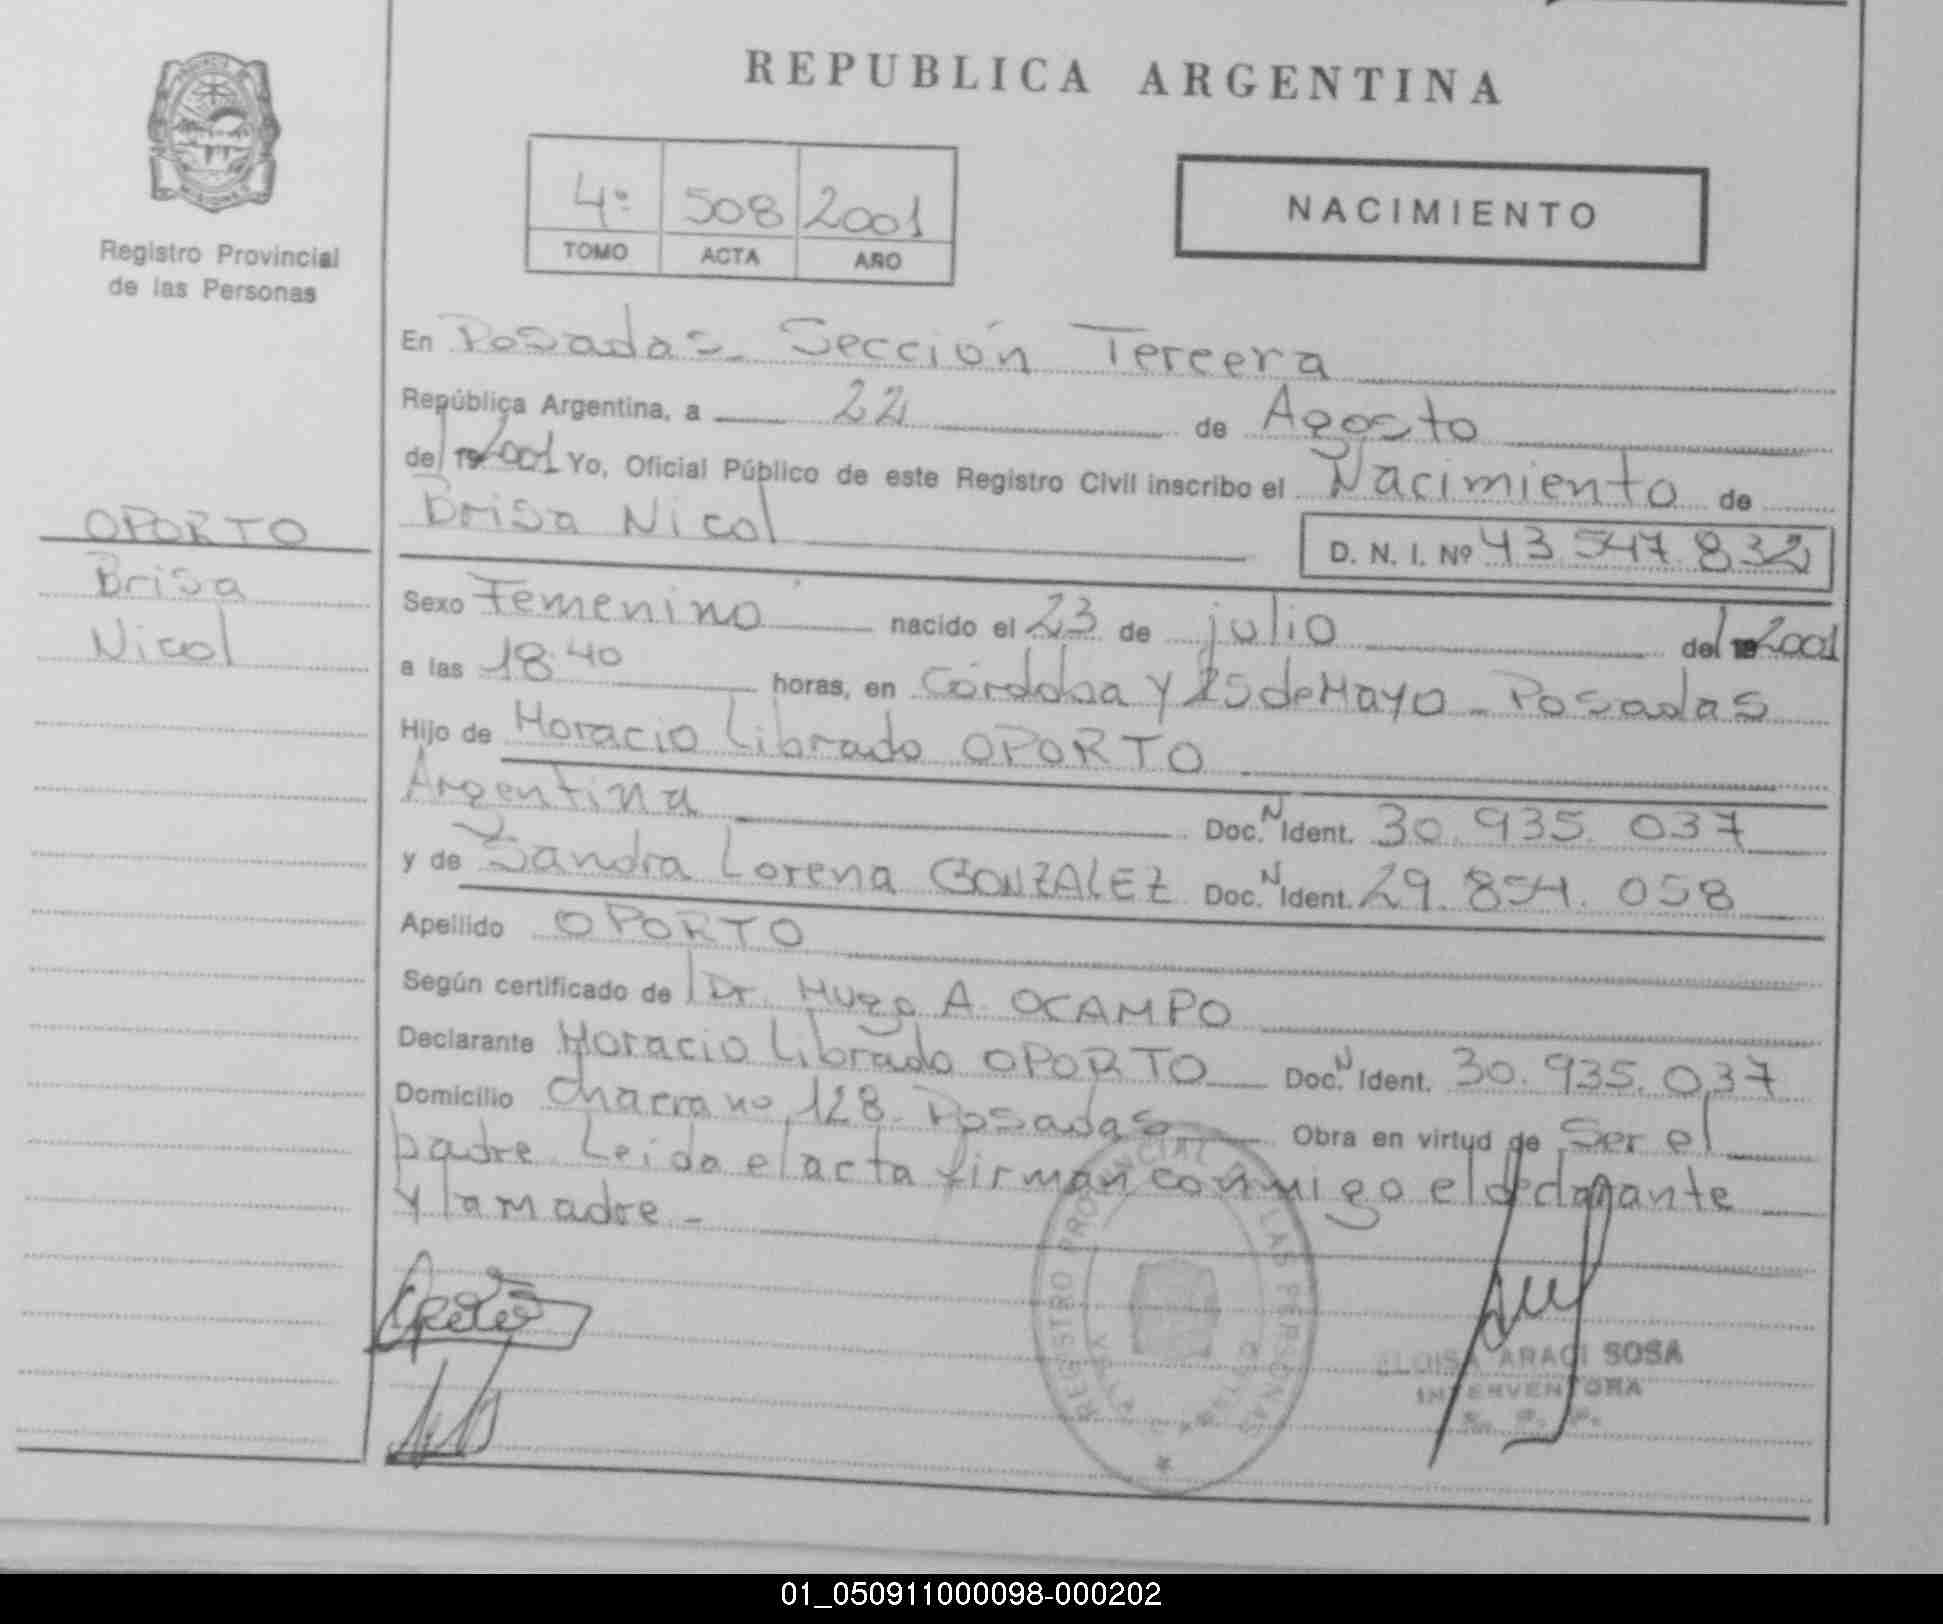 REPUBLICA ARGENTINA
Registro Provincial
de las Personas
4º 508 2001
TOMO ACTA AÑO
NACIMIENTO
OPORTO
Brisa
Nicol
En Posadas - Sección Tercera
República Argentina, a 22 de Agosto
del 2001 Yo, Oficial Público de este Registro Civil inscribo el Nacimiento de
Brisa Nicol D. N. I. Nº 43.547.832
Sexo Femenino nacido el 23 de julio del 2001
a las 18:40 horas, en Córdoba y 25 de Mayo - Posadas
Hijo de Horacio Librado OPORTO
Argentina Doc. N Ident. 30.935.037
y de Sandra Lorena GONZALEZ Doc. N Ident. 29.854.058
Apellido OPORTO
Según certificado de Dr. Hugo A. OCAMPO
Declarante Horacio Librado OPORTO Doc. N Ident. 30.935.037
Domicilio Chacra no 128 - Posadas Obra en virtud de Ser el
padre Leida el acta firman conmigo el declarante
y la madre -
REGISTRO PROVINCIAL LAS PERSONAS
ELOISA ARACI SOSA
INTERVENTORA
01_050911000098-000202